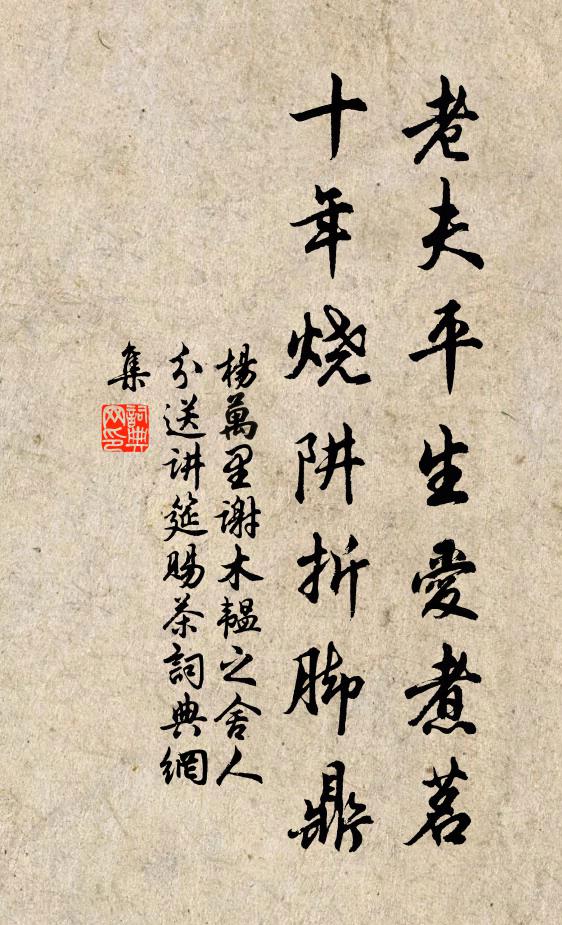 老夫平生愛煮茗
十年烧阱折脚鼎
楊萬里謝木韞之舍人
分送讲筵賜茶詞典網
集
詞典
网印